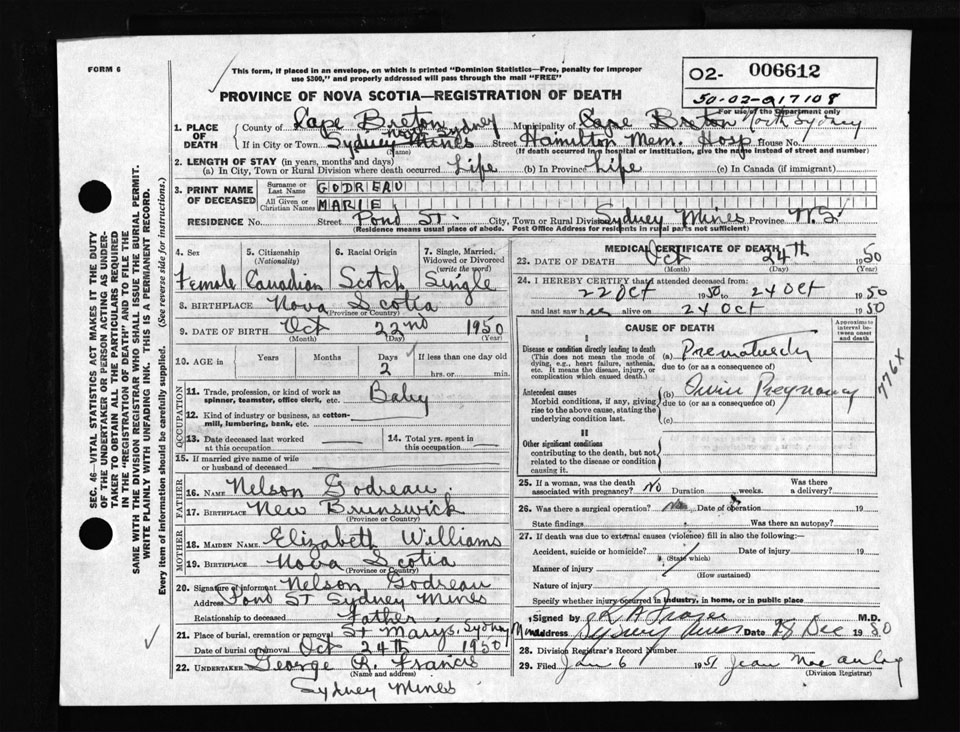 FORM 6
This form, if placed in an envelope, on which is printed "Dominion Statistics—Free, penalty for improper
use $300," and properly addressed will pass through the mail "FREE"
O2- 006612
50-02-017108
For use of the Department only
PROVINCE OF NOVA SCOTIA—REGISTRATION OF DEATH
1. PLACE OF DEATH County of Cape Breton Municipality of Cape Breton North Sydney
If in City or Town Sydney Mines North Sydney Street Hamilton Mem. Hosp House No.
(Name) (If death occurred in a hospital or institution, give the name instead of street and number)
2. LENGTH OF STAY (in years, months and days)
(a) In City, Town or Rural Division where death occurred Life (b) In Province Life (c) In Canada (if immigrant)
3. PRINT NAME OF DECEASED Surname or Last Name GODREAU
All Given or Christian Names MARIE
RESIDENCE No. Street Pond St. City, Town or Rural Division Sydney Mines Province N.S.
(Residence means usual place of abode. Post Office Address for residents in rural parts not sufficient)
4. Sex 5. Citizenship (Nationality) 6. Racial Origin 7. Single, Married, Widowed or Divorced (write the word)
Female Canadian Scotch Single
8. BIRTHPLACE Nova Scotia
(Province or Country)
9. DATE OF BIRTH Oct 22nd 1950
(Month) (Day) (Year)
10. AGE in Years Months Days 2 If less than one day old hrs. or min.
OCCUPATION
11. Trade, profession, or kind of work as spinner, teamster, office clerk, etc. Baby
12. Kind of industry or business, as cotton-mill, lumbering, bank, etc.
13. Date deceased last worked at this occupation 14. Total yrs. spent in this occupation
15. If married give name of wife or husband of deceased
FATHER
16. NAME Nelson Godreau
17. BIRTHPLACE New Brunswick
(Province or Country)
MOTHER
18. MAIDEN NAME Elizabeth Williams
19. BIRTHPLACE Nova Scotia
(Province or Country)
20. Signature of informant Nelson Godreau
Address Pond ST Sydney Mines
Relationship to deceased Father
21. Place of burial, cremation or removal St Marys, Sydney Mines
Date of burial or removal Oct 24th 1950
22. UNDERTAKER George R. Francis
(Name and address)
Sydney Mines
MEDICAL CERTIFICATE OF DEATH
23. DATE OF DEATH Oct 24th 1950
(Month) (Day) (Year)
24. I HEREBY CERTIFY that I attended deceased from:
22 Oct 1950 to 24 Oct 1950
and last saw her alive on 24 Oct 1950
CAUSE OF DEATH
Approximate interval between onset and death
I
Disease or condition directly leading to death
(This does not mean the mode of dying, e.g., heart failure, asthenia, etc. It means the disease, injury, or complication which caused death.)
(a) Prematurity
due to (or as a consequence of)
Antecedent causes
Morbid conditions, if any, giving rise to the above cause, stating the underlying condition last.
(b) Twin Pregnancy
due to (or as a consequence of)
(c)
776X
II
Other significant conditions
contributing to the death, but not related to the disease or condition causing it.
25. If a woman, was the death associated with pregnancy? No Duration weeks. Was there a delivery?
26. Was there a surgical operation? No Date of operation 19
State findings Was there an autopsy?
27. If death was due to external causes (violence) fill in also the following:—
Accident, suicide or homicide? (State which) Date of injury 19
Manner of injury (How sustained)
Nature of injury
Specify whether injury occurred in industry, in home, or in public place
Signed by K A Fraser M.D.
Address Sydney Mines Date 28 Dec 1950
28. Division Registrar's Record Number
29. Filed Jan 6 1951 Jean MacAulay
(Division Registrar)
SEC. 46—VITAL STATISTICS ACT MAKES IT THE DUTY
OF THE UNDERTAKER OR PERSON ACTING AS UNDER-
TAKER TO OBTAIN ALL THE PARTICULARS REQUIRED
IN THE "REGISTRATION OF DEATH" AND TO FILE THE
SAME WITH THE DIVISION REGISTRAR WHO SHALL ISSUE THE BURIAL PERMIT.
WRITE PLAINLY WITH UNFADING INK. THIS IS A PERMANENT RECORD.
Every item of information should be carefully supplied. (See reverse side for instructions.)